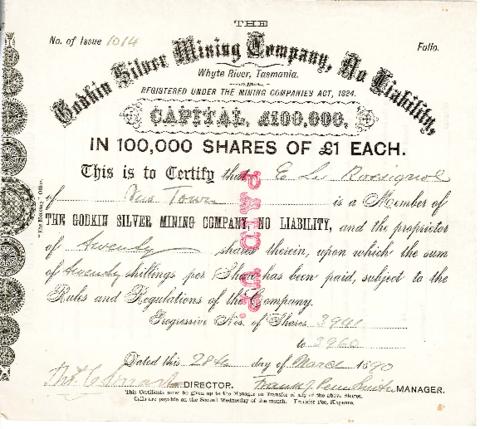 THE
No. of Issue 1014
Folio.
Godkin Silver Mining Company, No Liability,
Whyte River, Tasmania.
REGISTERED UNDER THE MINING COMPANIES ACT, 1884.
CAPITAL, £100,000,
IN 100,000 SHARES OF £1 EACH.
This is to Certify that E Le Rossignol
of New Town is a Member of
THE GODKIN SILVER MINING COMPANY, NO LIABILITY, and the proprietor
of twenty shares therein, upon which the sum
of twenty shillings per Share has been paid, subject to the
Rules and Regulations of the Company.
Progressive Nos. of Shares 3941
to 3960
Dated this 28th day of March 1890
DIRECTOR. MANAGER.
This Certificate must be given up to the Manager on Transfer of any of the above Shares.
Calls are payable on the Second Wednesday of the month. Transfer Fee,
PAID UP.
"The Mercury" Office.